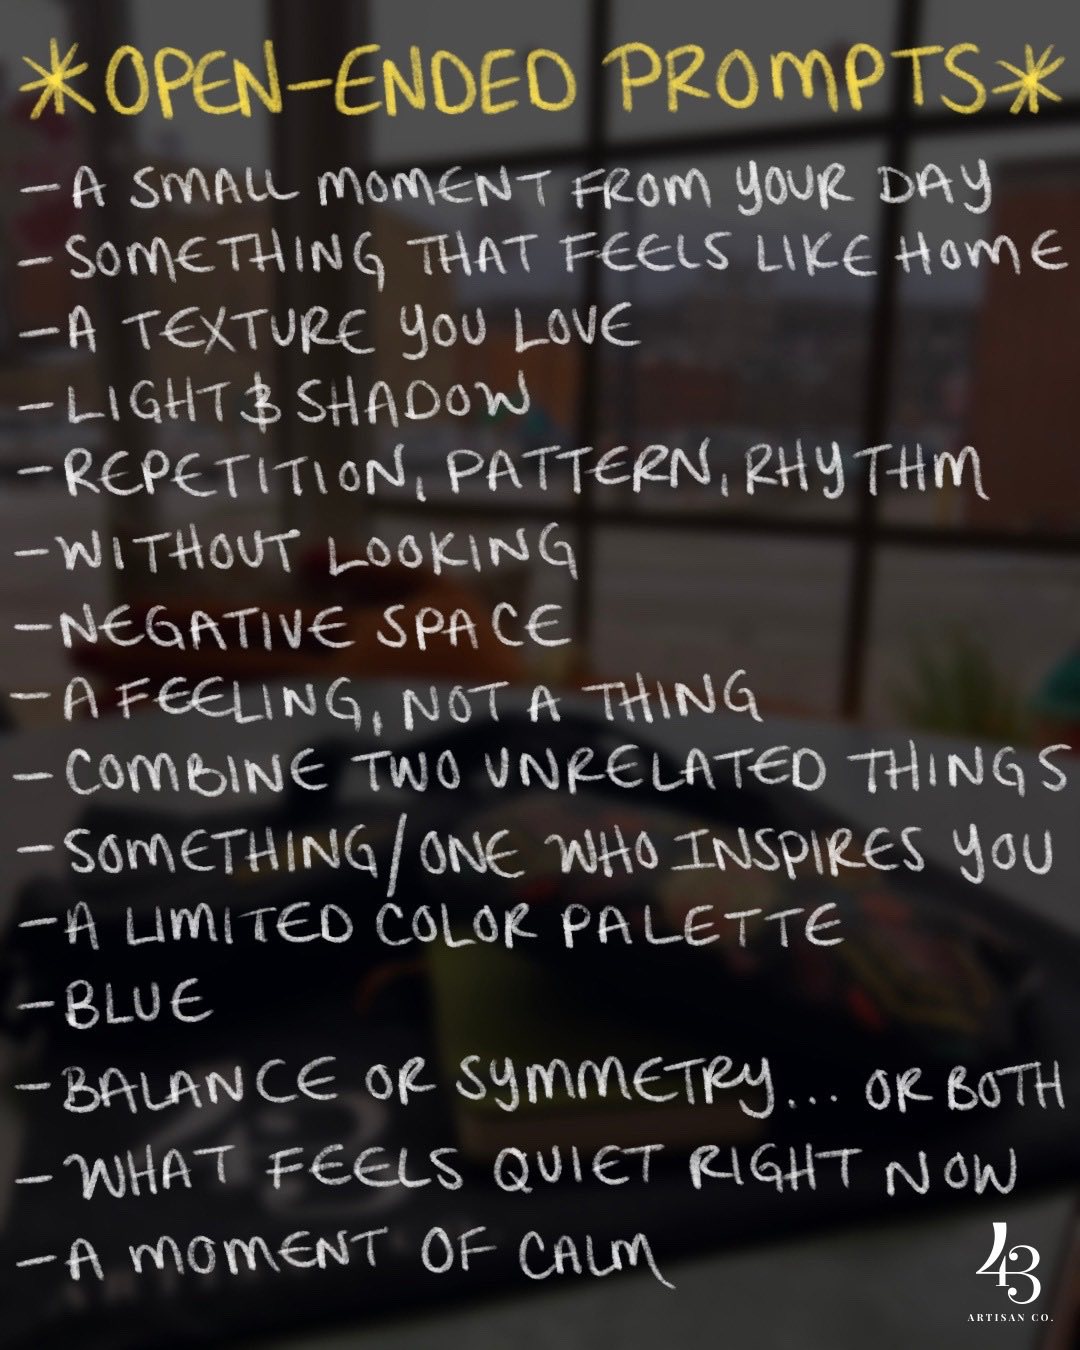 *OPEN-ENDED PROMPTS*
- A SMALL MOMENT FROM YOUR DAY
- SOMETHING THAT FEELS LIKE HOME
- A TEXTURE YOU LOVE
- LIGHT & SHADOW
- REPETITION, PATTERN, RHYTHM
- WITHOUT LOOKING
- NEGATIVE SPACE
- A FEELING, NOT A THING
- COMBINE TWO UNRELATED THINGS
- SOMETHING/ONE WHO INSPIRES YOU
- A LIMITED COLOR PALETTE
- BLUE
- BALANCE OR SYMMETRY... OR BOTH
- WHAT FEELS QUIET RIGHT NOW
- A MOMENT OF CALM
43
ARTISAN CO.